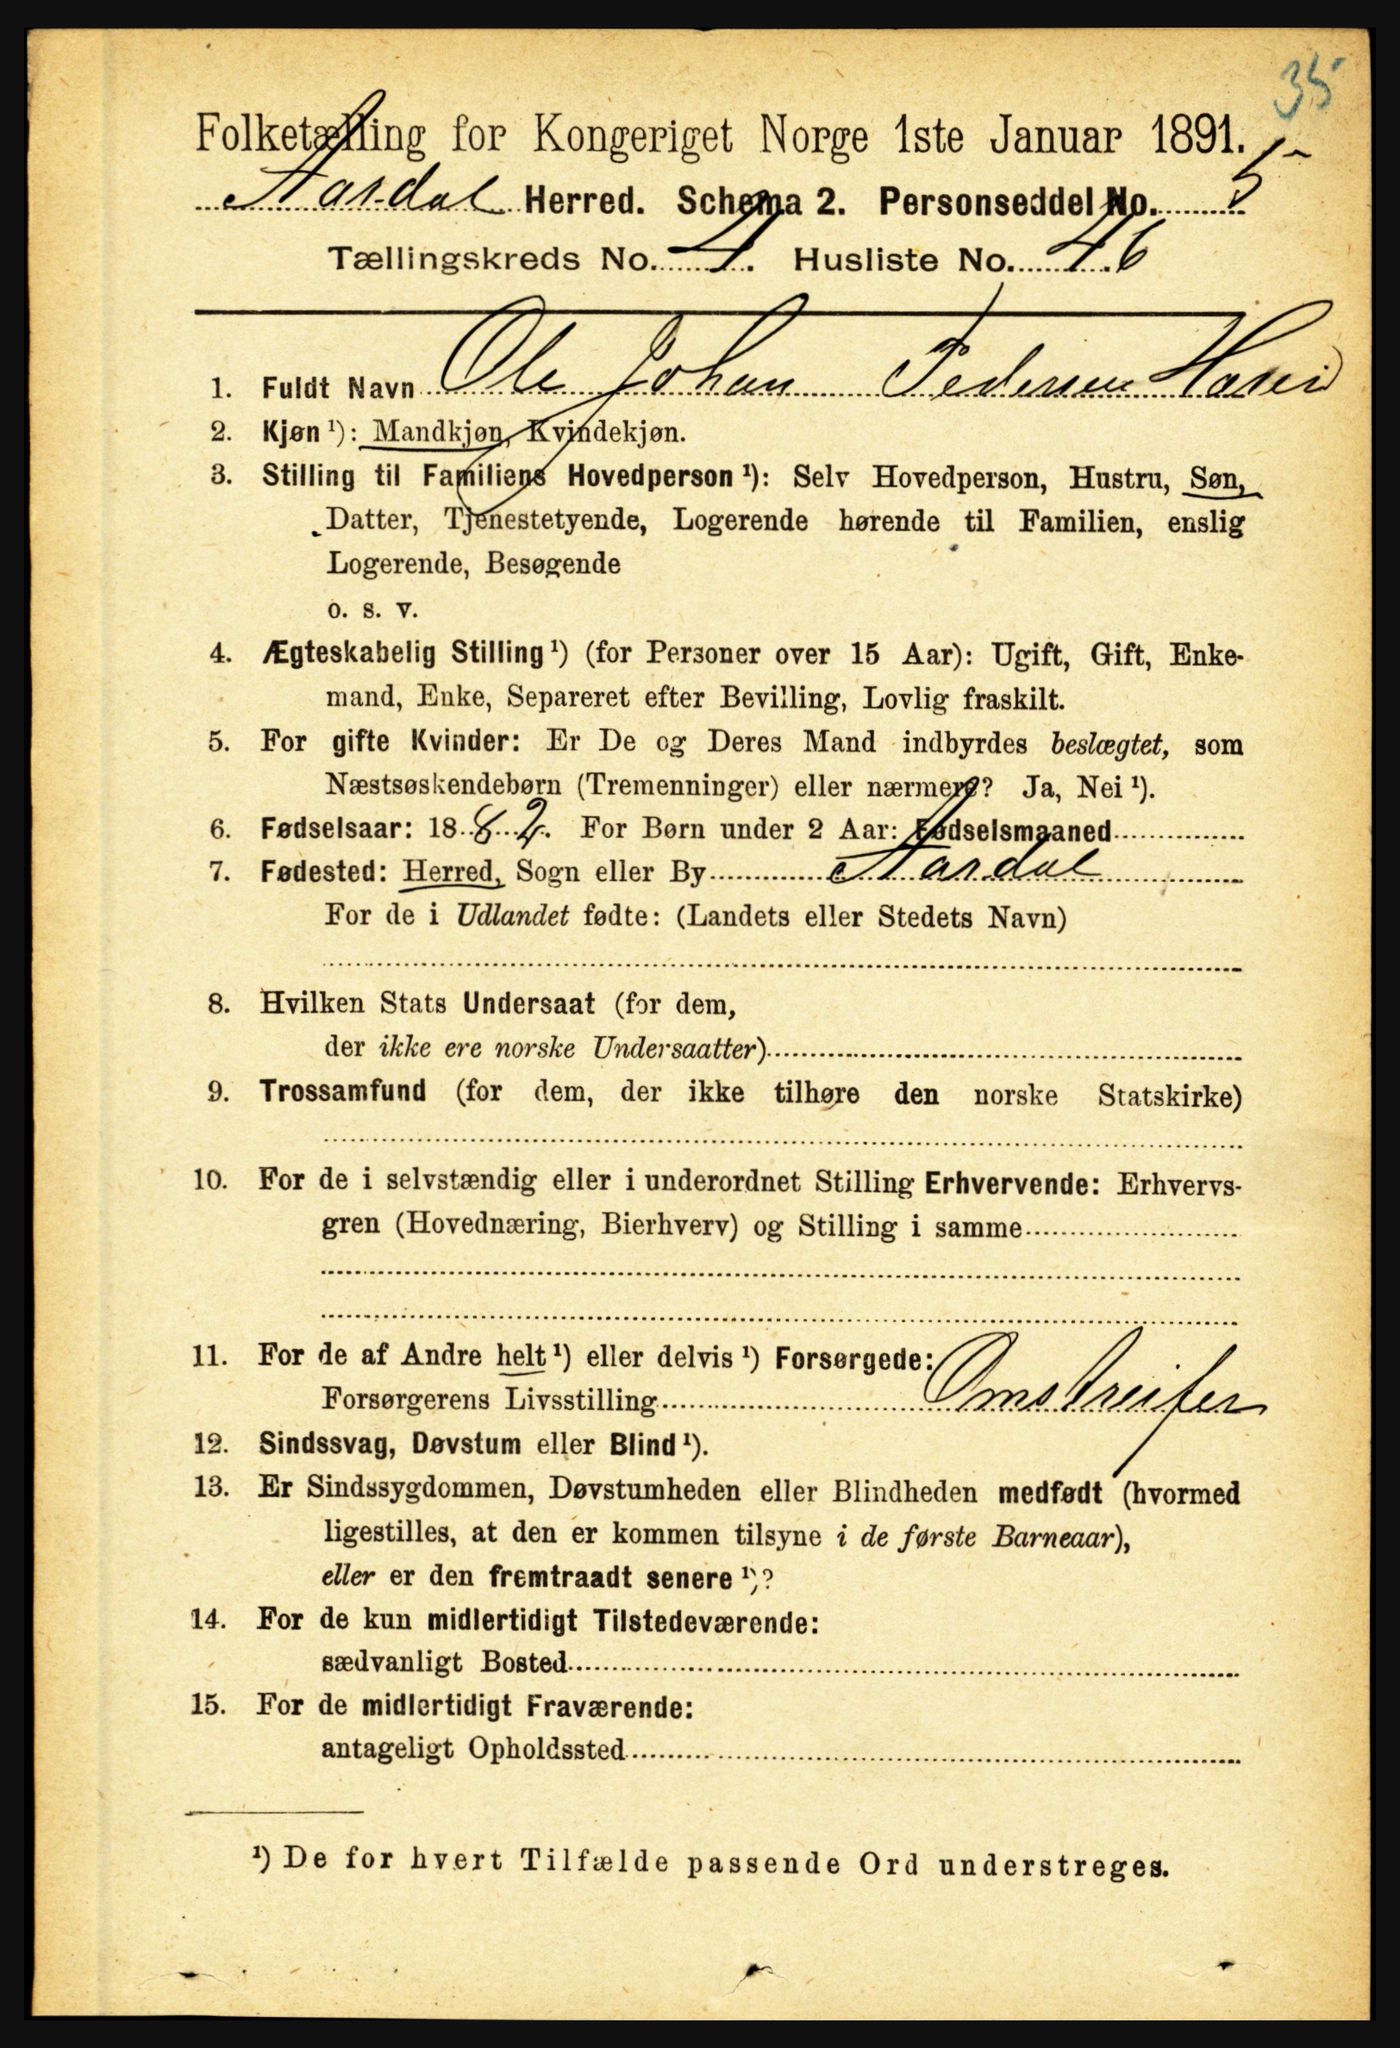 35
Folketælling for Kongeriget Norge 1ste Januar 1891.
Aardal Herred. Schema 2. Personseddel No. 5
Tællingskreds No. 4. Husliste No. 46
1. Fuldt Navn Ole Johan Pedersen
2. Kjøn ¹): Mandkjøn, Kvindekjøn.
3. Stilling til Familiens Hovedperson ¹): Selv Hovedperson, Hustru, Søn,
Datter, Tjenestetyende, Logerende hørende til Familien, enslig
Logerende, Besøgende
o. s. v.
4. Ægteskabelig Stilling ¹) (for Personer over 15 Aar): Ugift, Gift, Enke-
mand, Enke, Separeret efter Bevilling, Lovlig fraskilt.
5. For gifte Kvinder: Er De og Deres Mand indbyrdes beslægtet, som
Næstsøskendebørn (Tremenninger) eller nærmere? Ja, Nei ¹).
6. Fødselsaar: 1882. For Børn under 2 Aar: Fødselsmaaned
7. Fødested: Herred, Sogn eller By Aardal
For de i Udlandet fødte: (Landets eller Stedets Navn)
8. Hvilken Stats Undersaat (for dem,
der ikke ere norske Undersaatter)
9. Trossamfund (for dem, der ikke tilhøre den norske Statskirke)
10. For de i selvstændig eller i underordnet Stilling Erhvervende: Erhvervs-
gren (Hovednæring, Bierhverv) og Stilling i samme
11. For de af Andre helt ¹) eller delvis ¹) Forsørgede:
Forsørgerens Livsstilling Omstreifer
12. Sindssvag, Døvstum eller Blind ¹).
13. Er Sindssygdommen, Døvstumheden eller Blindheden medfødt (hvormed
ligestilles, at den er kommen tilsyne i de første Barneaar),
eller er den fremtraadt senere ¹)?
14. For de kun midlertidigt Tilstedeværende:
sædvanligt Bosted
15. For de midlertidigt Fraværende:
antageligt Opholdssted
¹) De for hvert Tilfælde passende Ord understreges.